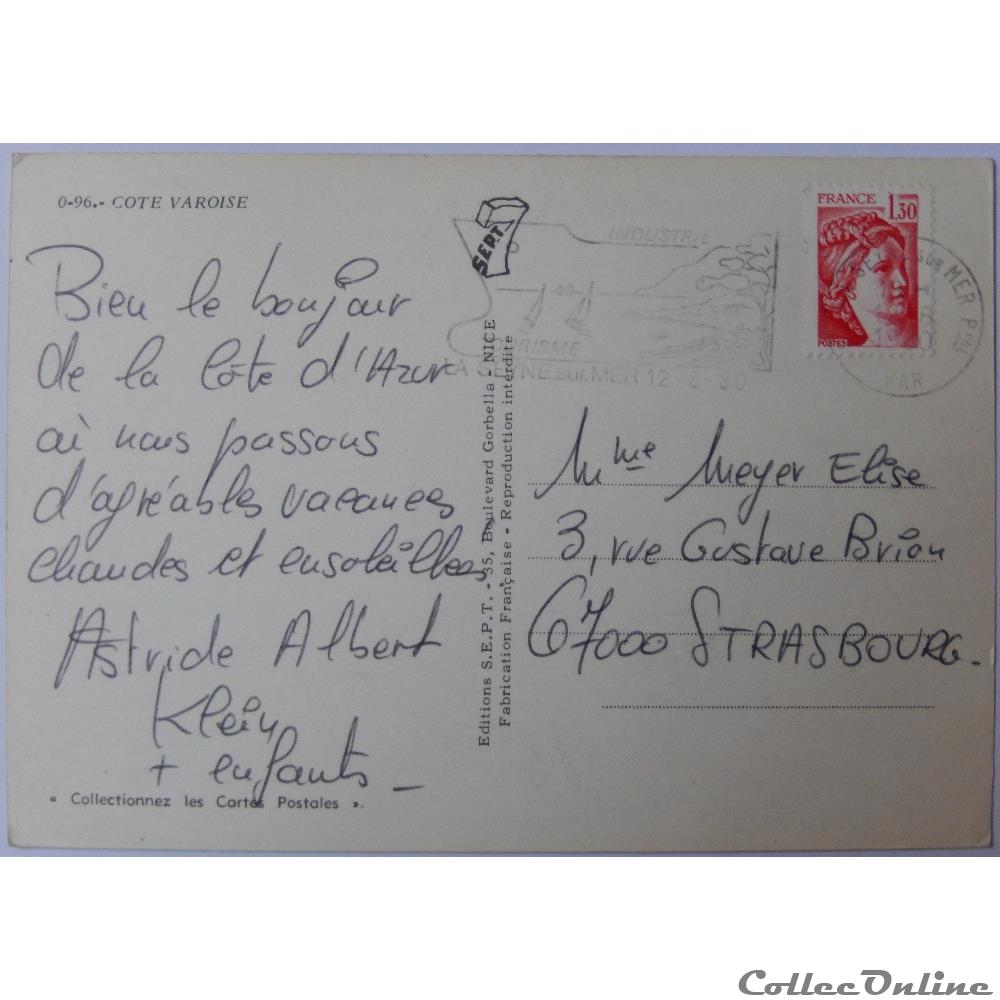 0-96.- COTE VAROISE
Bien le bonjour
de la Côte d'Azur
où nous passons
d'agréables vacances
chaudes et ensoleillées.
Astride Albert
Klein
+ enfants _
« Collectionnez les Cartes Postales ».
SEPT
Editions S.E.P.T. - 35, Boulevard Gorbella - NICE
Fabrication Française - Reproduction interdite
INDUSTRIE
TOURISME
LA SEYNE sur MER 12-8-80
FRANCE 1,30
POSTES
SEYNE SUR MER PPAL
VAR
Mme Meyer Elise
3, rue Gustave Brion
67000 STRASBOURG.
CollecOnline